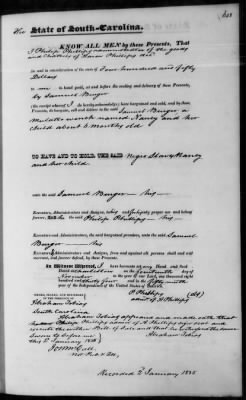 The State of South-Carolina.
KNOW ALL MEN by these Presents, That
I Philip Phillips administrator of the goods
and Chattels of
for and in consideration of the sum of Four hundred and fifty
Dollars
to me in hand paid, at and before the sealing and delivery of these Presents,
by Samuel Burger
(the receipt whereof I do hereby acknowledge) have bargained and sold, and by these
Presents, do bargain, sell and deliver to the said Samuel Burger a
Mulatto wench named Nancy and her
Child about 6 months old
TO HAVE AND TO HOLD THE SAID Negro Slave Nancy
and her child
unto the said Samuel Burger his
Executors, Administrators and Assigns,
the said Philip Phillips my
Executors and Administrators, the said bargained premises, unto the said Samuel
Burger his
Executors, Administrators and Assigns, from and against all persons shall and will
warrant, and forever defend, by these Presents.
In Witness Whereof, I have hereunto set my Hand and Seal
Dated at Charleston on the fourteenth day of
November in the year of our Lord, one thousand eight
hundred and thirty four and in the fifty ninth
year of the Independence of the United States of America.
SIGNED, SEALED, AND DELIVERED
IN THE PRESENCE OF
P Phillips
Abraham Tobias
South Carolina
Abraham Tobias appeared and made oath that
Philip Phillips
Sworn to before me
this 2 January 1835
Abraham Tobias
Not Pub
Recorded 2 January 1835